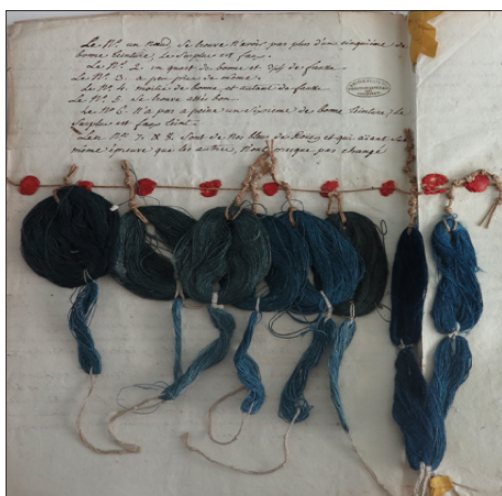 Le N°. un nœud, se trouve n'avoir pas plus d'un cinquieme de
bonne teinture, le surplus est faux.
Le N°. 2. un quart de bonne et 3/4 de fausse
Le N°. 3. a peu pres de même.
Le N°. 4. moitié de bonne et autant de fausse
Le N°. 5. se trouve assés bon.
Le N°. 6. N'a pas a peine un sixieme de bonne teinture, le
surplus est faux teint.
Les N°s. 7. & 8. sont de nos bleu de Roüen et qui aïant
même épreuve que les autres, n'ont presque pas changé